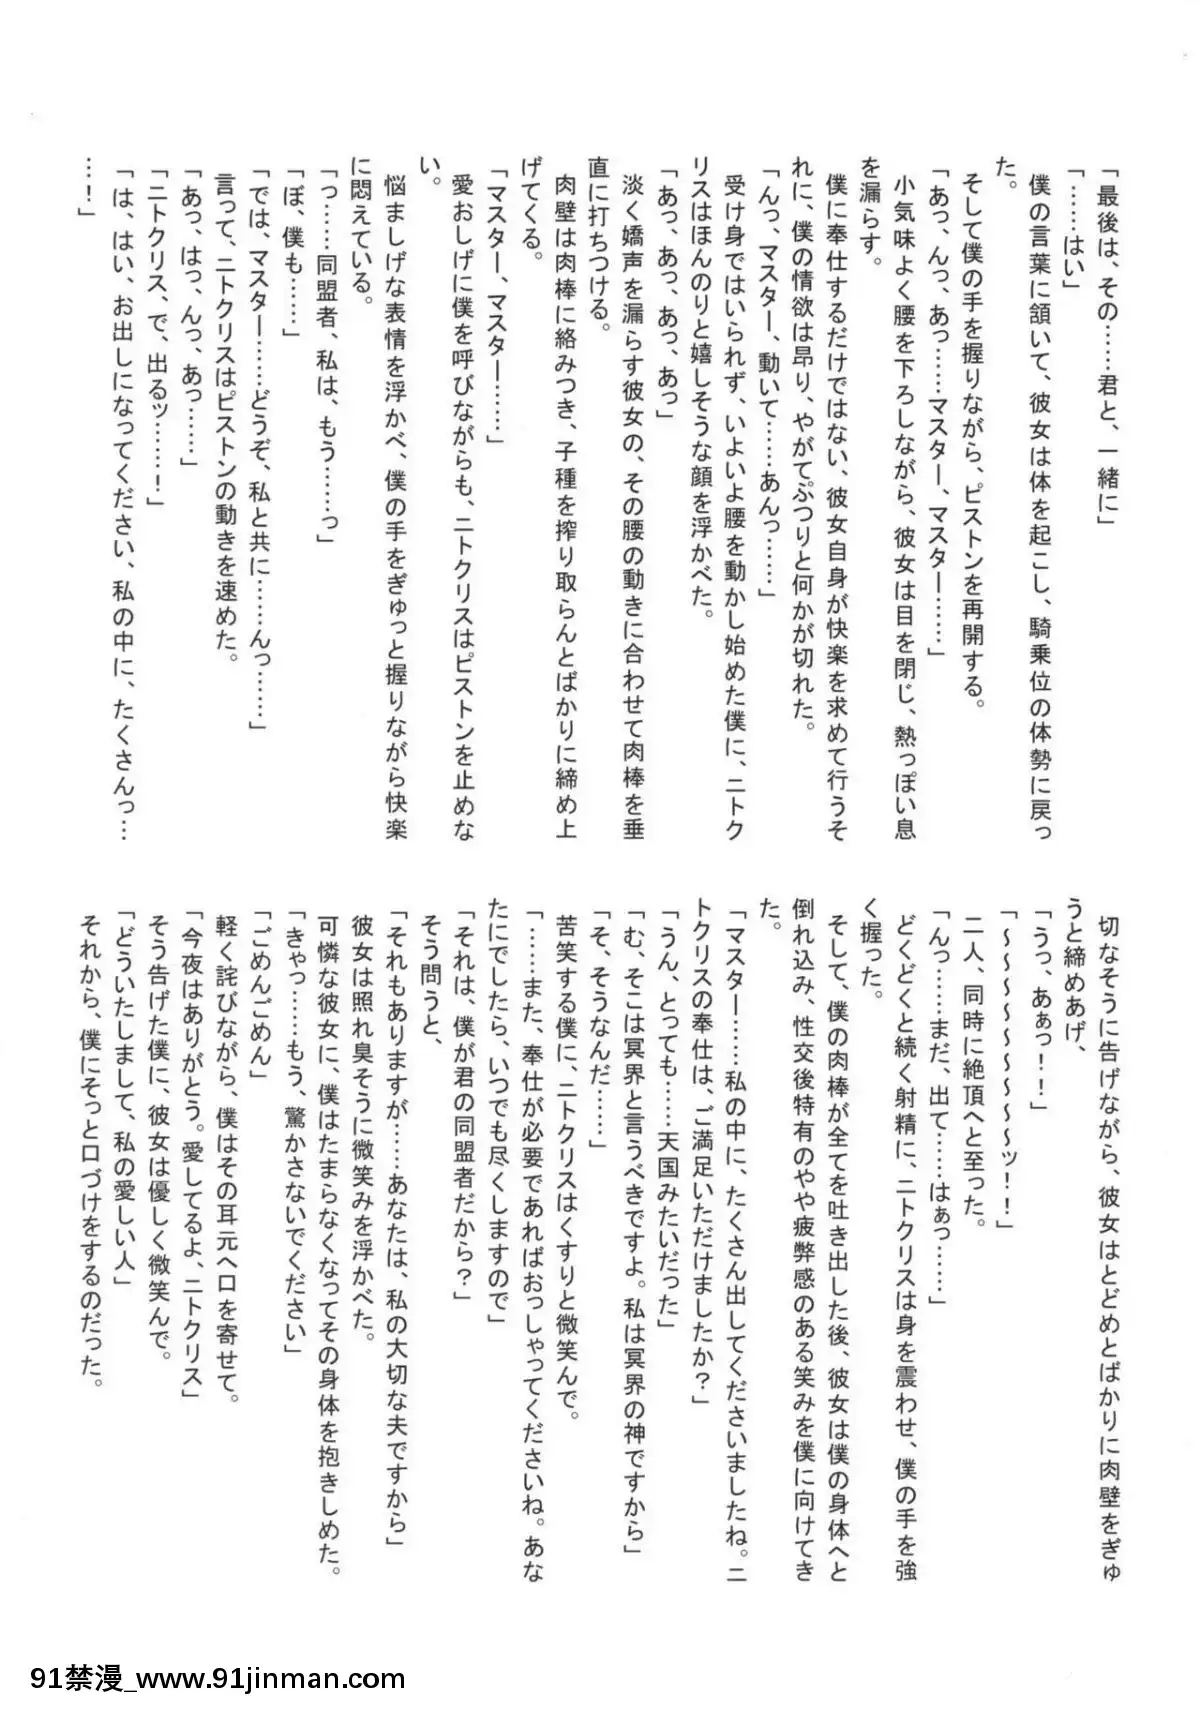 「最後は、その……君と、一緒に」
「……はい」
僕の言葉に頷いて、彼女は体を起こし、騎乗位の体勢に戻っ
た。
そして僕の手を握りながら、ピストンを再開する。
「あっ、んっ、あっ……マスター、マスター……」
小気味よく腰を下ろしながら、彼女は目を閉じ、熱っぽい息
を漏らす。
僕に奉仕するだけではない、彼女自身が快楽を求めて行うそ
れに、僕の情欲は昂り、やがてぷつりと何かが切れた。
「んっ、マスター、動いて……あんっ……」
受け身ではいられず、いよいよ腰を動かし始めた僕に、ニトク
リスはほんのりと嬉しそうな顔を浮かべた。
「あっ、あっ、あっ、あっ」
淡く嬌声を漏らす彼女の、その腰の動きに合わせて肉棒を垂
直に打ちつける。
肉壁は肉棒に絡みつき、子種を搾り取らんとばかりに締め上
げてくる。
「マスター、マスター……」
愛おしげに僕を呼びながらも、ニトクリスはピストンを止めな
い。
悩ましげな表情を浮かべ、僕の手をぎゅっと握りながら快楽
に悶えている。
「っ……同盟者、私は、もう……っ」
「ぼ、僕も……」
「では、マスター……どうぞ、私と共に……んっ……」
言って、ニトクリスはピストンの動きを速めた。
「あっ、はっ、んっ、あっ……」
「ニトクリス、で、出るッ……！」
「は、はい、お出しになってください、私の中に、たくさんっ…
…！」
切なそうに告げながら、彼女はとどめとばかりに肉壁をぎゅ
うと締めあげ、
「うっ、あぁっ！！」
「～～～～～～～～ッ！！」
二人、同時に絶頂へと至った。
「んっ……まだ、出て……はぁっ……」
どくどくと続く射精に、ニトクリスは身を震わせ、僕の手を強
く握った。
そして、僕の肉棒が全てを吐き出した後、彼女は僕の身体へと
倒れ込み、性交後特有のやや疲弊感のある笑みを僕に向けてき
た。
「マスター……私の中に、たくさん出してくださいましたね。ニ
トクリスの奉仕は、ご満足いただけましたか？」
「うん、とっても……天国みたいだった」
「む、そこは冥界と言うべきですよ。私は冥界の神ですから」
「そ、そうなんだ……」
苦笑する僕に、ニトクリスはくすりと微笑んで。
「……また、奉仕が必要であればおっしゃってくださいね。あな
たにでしたら、いつでも尽くしますので」
「それは、僕が君の同盟者だから？」
そう問うと、
「それもありますが……あなたは、私の大切な夫ですから」
彼女は照れ臭そうに微笑みを浮かべた。
可憐な彼女に、僕はたまらなくなってその身体を抱きしめた。
「きゃっ……もう、驚かさないでください」
「ごめんごめん」
軽く詫びながら、僕はその耳元へ口を寄せて。
「今夜はありがとう。愛してるよ、ニトクリス」
そう告げた僕に、彼女は優しく微笑んで。
「どういたしまして、私の愛しい人」
それから、僕にそっと口づけをするのだった。
91禁漫_www.91jinman.com